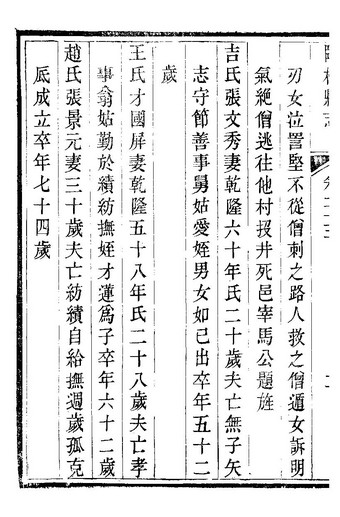 刃女泣詈堅不從僧刺之路人救之僧遁女訴明
氣絕僧逃往他村投井死邑宰馬公題旌
吉氏張文秀妻乾隆六十年氏二十歲夫亡無子矢
志守節善事舅姑愛姪男女如已出卒年五十二
歲
王氏才國屏妻乾隆五十八年氏二十八歲夫亡孝
事翁姑勤於績紡撫姪才蓮爲子卒年六十二歲
趙氏張景元妻三十歲夫亡紡績自給撫週歲孤克
底成立卒年七十四歲